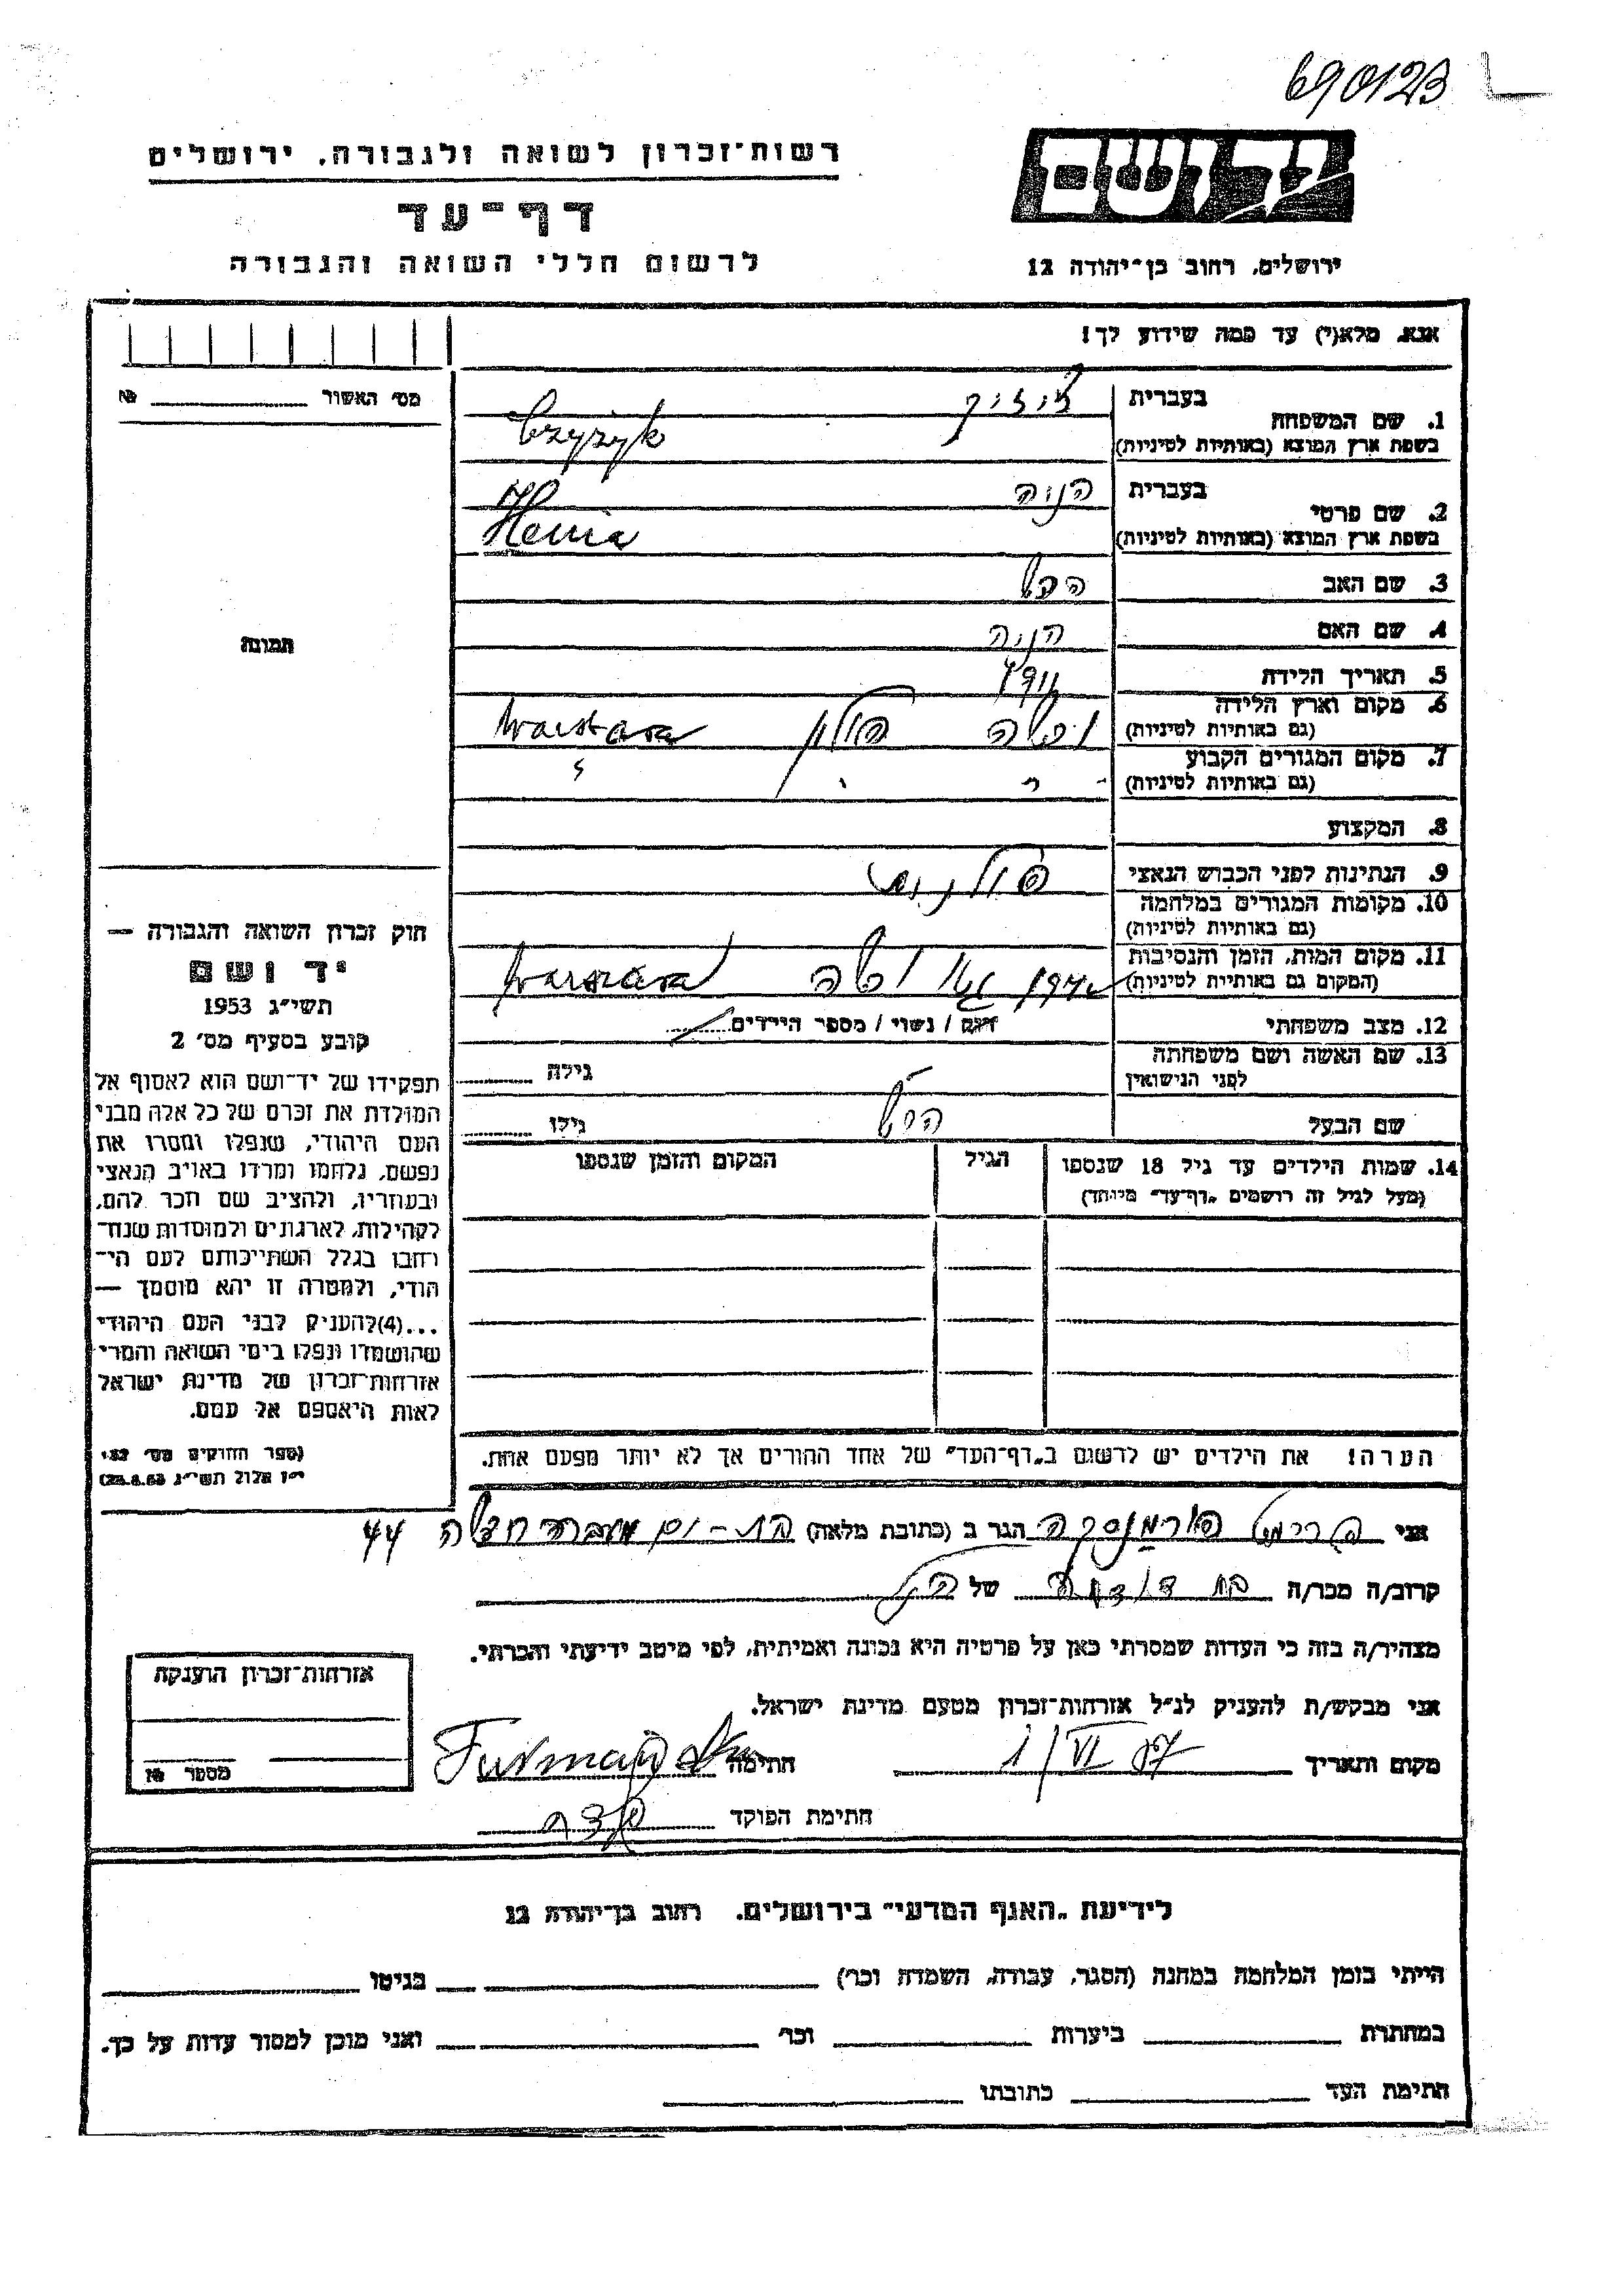 690123
יד ושם
רשות־זכרון לשואה ולגבורה, ירושלים
דף־עד
לרשום חללי השואה והגבורה
ירושלים, רחוב בן־יהודה 12
אנא, מלא(י) עד כמה שידוע לך!
מס׳ האשור № 
1. שם המשפחה
בעברית
בשפת ארץ המוצא (באותיות לטיניות) Czyżyk
2. שם פרטי
בעברית הניה
בשפת ארץ המוצא (באותיות לטיניות) Henia
3. שם האב
4. שם האם
5. תאריך הלידה
6. מקום וארץ הלידה
(גם באותיות לטיניות) פולין
7. מקום המגורים הקבוע
(גם באותיות לטיניות)
8. המקצוע
9. הנתינות לפני הכבוש הנאצי פולנית
10. מקומות המגורים במלחמה
(גם באותיות לטיניות)
11. מקום המות, הזמן והנסיבות
(המקום גם באותיות לטיניות) Warszawa
12. מצב משפחתי רווק / נשוי / מספר הילדים
13. שם האשה ושם משפחתה
לפני הנישואין גילה
שם הבעל גילו
14. שמות הילדים עד גיל 18 שנספו הגיל המקום והזמן שנספו
(מעל לגיל זה רושמים „דף־עד״ מיוחד)
תמונה
חוק זכרון השואה והגבורה —
יד ושם
תשי״ג 1953
קובע בסעיף מס׳ 2
תפקידו של יד־ושם הוא לאסוף אל
המולדת את זכרם של כל אלה מבני
העם היהודי, שנפלו ומסרו את
נפשם, נלחמו ומרדו באויב הנאצי
ובעוזריו, ולהציב שם וזכר להם,
לקהילות, לארגונים ולמוסדות שנח־
רבו בגלל השתייכותם לעם הי־
הודי, ולמטרה זו יהא מוסמך —
...(4)להעניק לבני העם היהודי
שהושמדו ונפלו בימי השואה והמרי
אזרחות־זכרון של מדינת ישראל
לאות היאספם אל עמם.
(ספר החוקים מס׳ 132,
י״ז אלול תשי״ג 28.8.53)
הערה! את הילדים יש לרשום ב„דף־העד״ של אחד ההורים אך לא יותר מפעם אחת.
אני הגר ב (כתובת מלאה) בת-ים 44
קרוב/ה מכר/ה של
מצהיר/ה בזה כי העדות שמסרתי כאן על פרטיה היא נכונה ואמיתית, לפי מיטב ידיעתי והכרתי.
אני מבקש/ת להעניק לנ״ל אזרחות־זכרון מטעם מדינת ישראל.
מקום ותאריך חתימה
חתימת הפוקד
אזרחות־זכרון הוענקה
מספר №
לידיעת „האגף המדעי״ בירושלים, רחוב בן־יהודה 12
הייתי בזמן המלחמה במחנה (הסגר, עבודה, השמדה וכר׳) בגיטו
במחתרת ביערות וכר׳ ואני מוכן למסור עדות על כך.
חתימת העד כתובתו